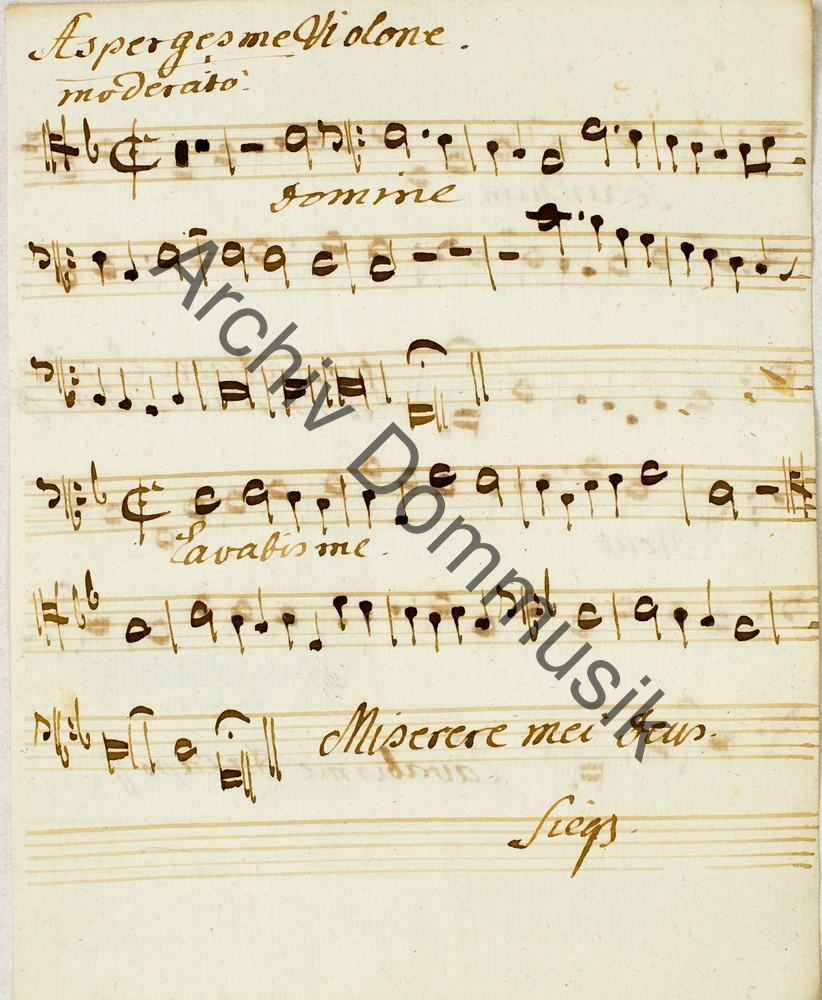 Asperges me Violone.
moderato
Domine
Lavabis me.
Miserere mei Deus.
Archiv Dommusik